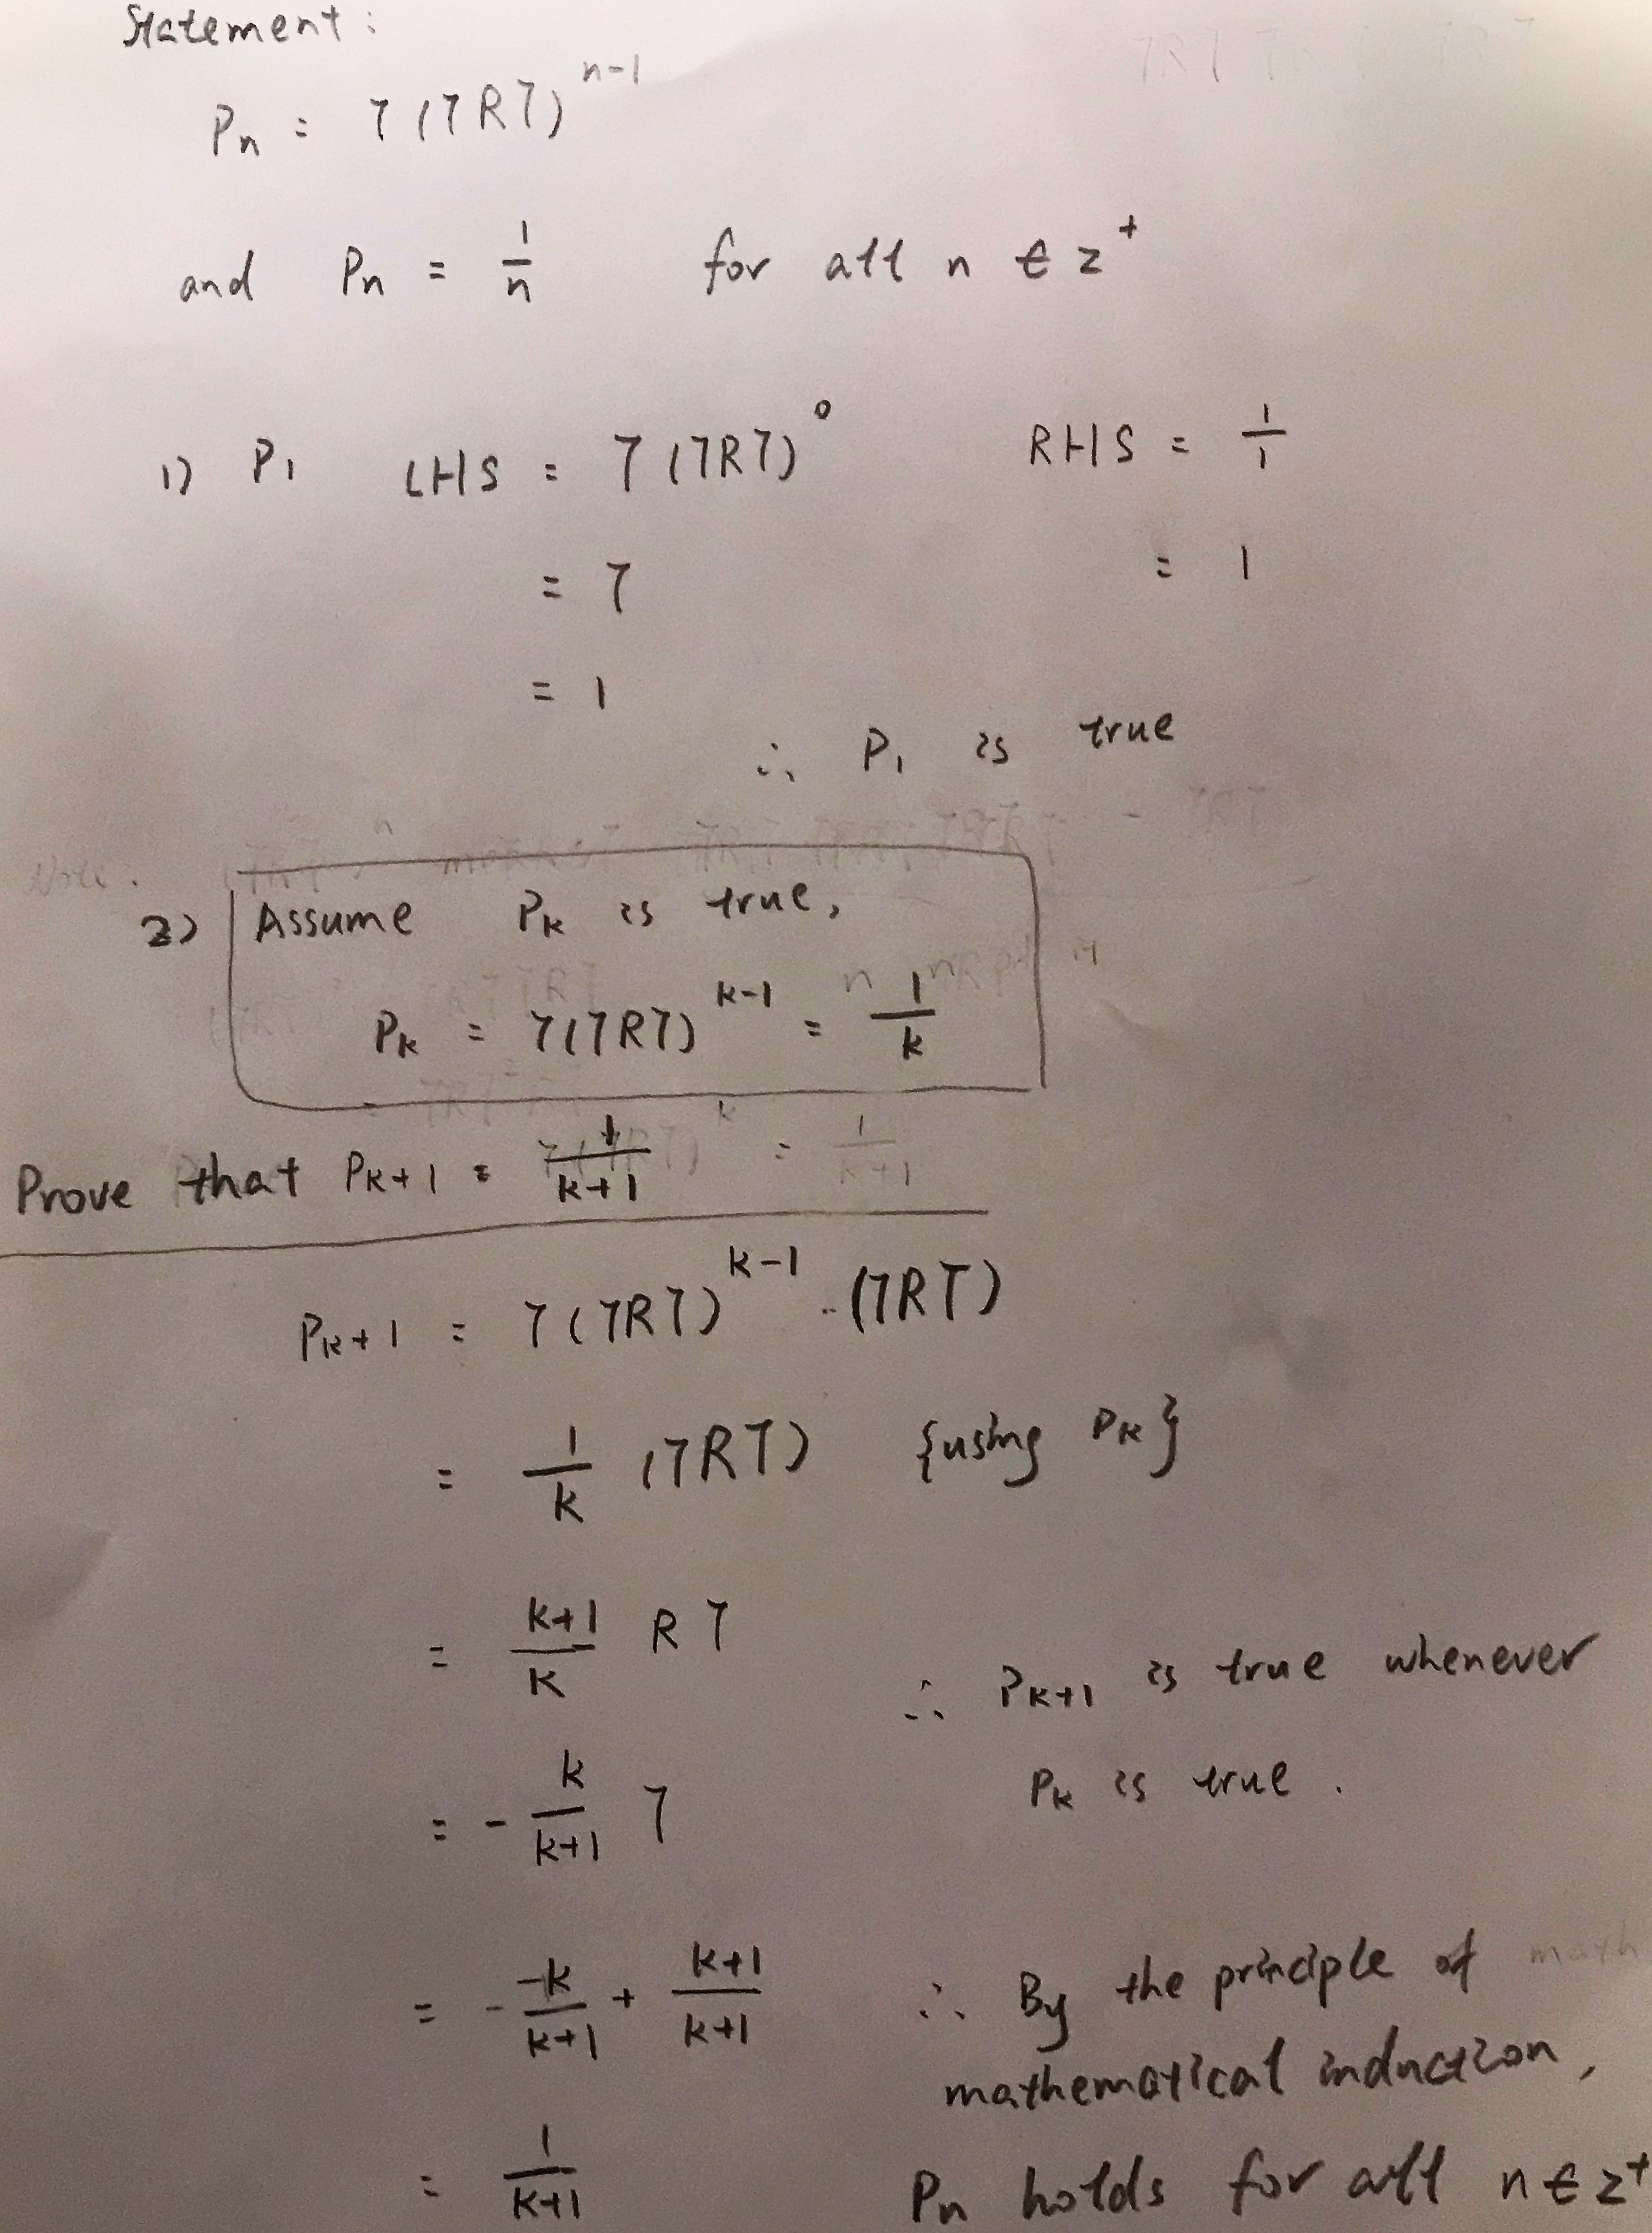 Statement:
Pn = T(TRT)^{n-1}
and Pn = 1/n for all n ∈ z^+
1) P1 LHS = T(TRT)^0 RHS = 1/1
= T = 1
= 1
∴ P1 is true
2) Assume Pk is true,
Pk = T(TRT)^{k-1} = 1/k
Prove that Pk+1 = 1/(k+1)
Pk+1 = T(TRT)^{k-1} · (TRT)
= 1/k (TRT) {using Pk}
= (k+1)/k RT
∴ Pk+1 is true whenever
Pk is true.
= -k/(k+1) T
= -k/(k+1) + (k+1)/(k+1)
∴ By the principle of math
mathematical induction,
= 1/(k+1)
Pn holds for all n ∈ z^+